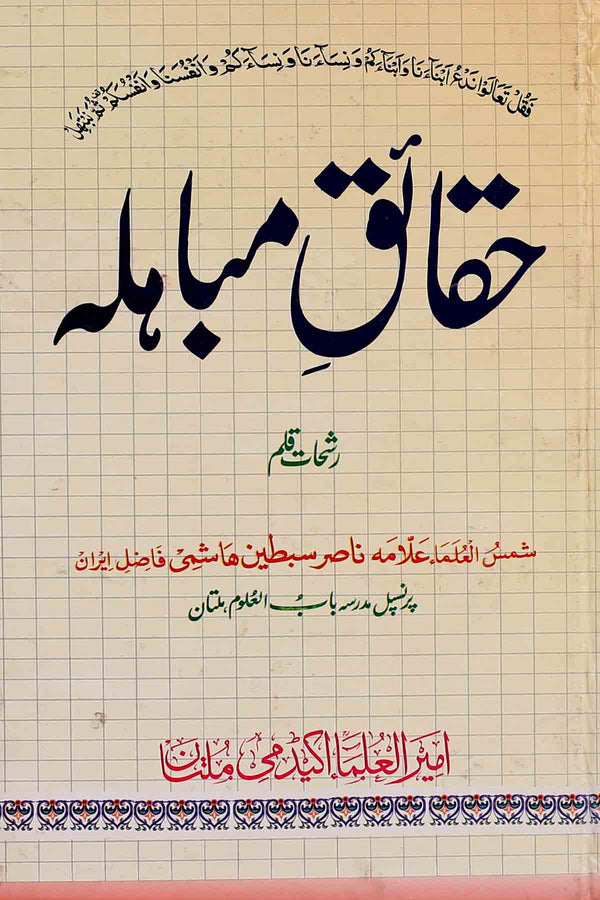 فَقُلْ تَعَالَوْا نَدْعُ اَبْنَآءَنَا وَاَبْنَآءَكُمْ وَنِسَآءَنَا وَنِسَآءَكُمْ وَاَنْفُسَنَا وَاَنْفُسَكُمْ ثُمَّ نَبْتَهِلْ
حقائقِ مباہلہ
رشحات قلم
شمسُ العُلمَاء عَلّامَہ ناصر سبطین ھاشمِیْ فَاضِلِ اِیْرَانْ
پرنسپل مدرسہ بابُ العُلوم، ملتان
امیرُالعُلمَآء اکیڈمی مُلتان